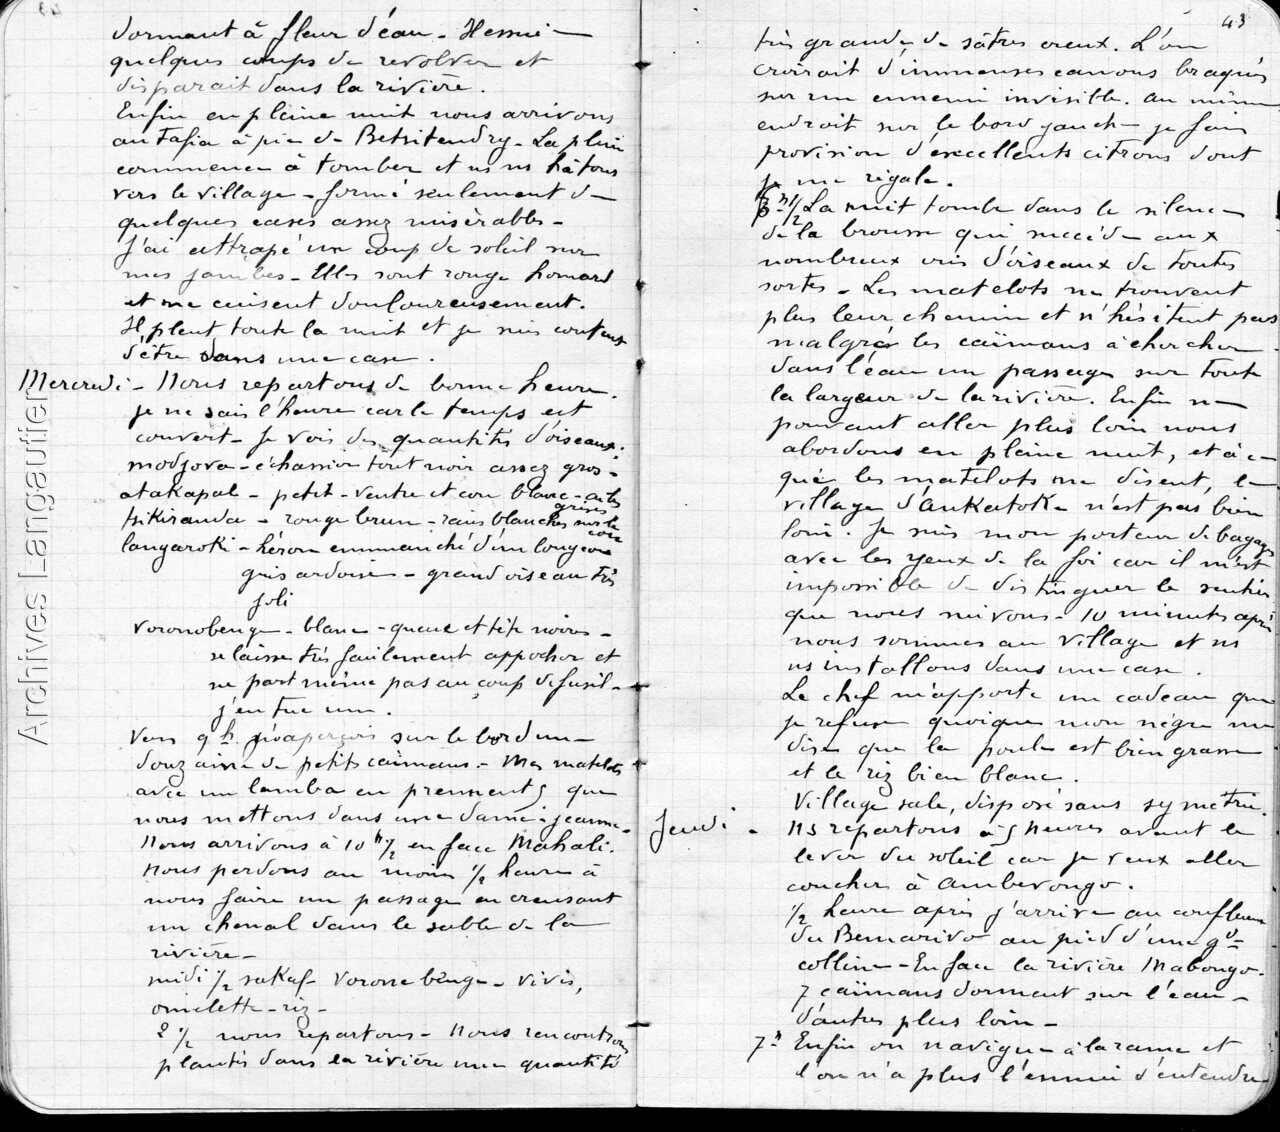 dormant à fleur d'eau - Hemni -
quelques coups de revolver et
disparait dans la rivière.
Enfin en pleine nuit nous arrivons
au à pic de Betsitendry - La pluie
commence à tomber et ns ns hâtons
vers le village - formé seulement de
quelques cases assez misérables -
J'ai attrapé un coup de soleil sur
mes jambes - Elles sont rouge homard
et me cuisent douloureusement.
Il pleut toute la nuit et je suis content
d'être dans une case.
Mercredi - Nous repartons de bonne heure.
je ne sais l'heure car le temps est
couvert - Je vois des quantités d'oiseaux.
modjova - échassier tout noir assez gros -
atakapak - petit - ventre et cou blanc - ailes
grises
tsikiranda - rouge brun - raies blanches sur le
cou
langaroki - héron emmanché d'un long cou
gris ardoisé - grand oiseau très
joli
Voronobenge - blanc - queue et tête noires -
se laisse très facilement approcher et
ne part même pas au coup de fusil -
j'en tue un.
Vers 9h j'apercois sur le bord une
douzaine de petits caïmans - Mes matelots
avec un lamba en prennent 5 que
nous mettons dans une dame-jeanne -
Nous arrivons à 10h 1/2 en face Mahali.
Nous perdons au moins 1/2 heure à
nous faire un passage en creusant
un chenal dans le sable de la
rivière -
midi 1/2 sakaf - Vorone benge - vivis,
omelette - riz -
2 1/2 nous repartons - Nous rencontrons
plantés dans la rivière une quantité
43
très grande de sâtres creux. L'on
croirait d'immenses canons braqués
sur un ennemi invisible. au même
endroit sur le bord gauche je fais
provision d'excellents citrons dont
je me régale.
h 1/2 La nuit tombe dans le silence
de la brousse qui succède aux
nombreux cris d'oiseaux de toutes
sortes - Les matelots ne trouvent
plus leur chemin et n'hésitent pas
malgré les caïmans à chercher
dans l'eau un passage sur toute
la largeur de la rivière. Enfin ne
pouvant aller plus loin nous
abordons en pleine nuit, et à ce
que les matelots me disent, le
village d'Ankatoka n'est pas bien
loin. Je suis mon porteur de bagages
avec les yeux de la foi car il m'est
impossible de distinguer le sentier
que nous suivons - 10 minutes après
nous sommes au village et ns
ns installons dans une case.
Le chef m'apporte un cadeau que
je refuse quoique mon nègre me
dise que la poule est bien grasse
et le riz bien blanc.
Village sale, disposé sans symétrie.
Jeudi - Ns repartons à 5 heures avant le
lever du soleil car je veux aller
coucher à Amberongo.
1/2 heure après j'arrive au confluent
du Bemarivo au pied d'une gde
colline - En face la rivière Mabongo.
7 caïmans dorment sur l'eau -
d'autres plus loin -
7h Enfin on navigue à la rame et
l'on n'a plus l'ennui d'entendre
Archives Langautier